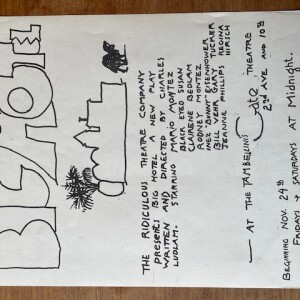 BIG
THE RIDICULOUS THEATRE COMPANY
PRESENTS BIG HOTEL A NEW PLAY
WRITTEN AND DIRECTED BY CHARLES
LUDLAM. STARRING MARIO MONTEZ
BLACK EYED SUSAN
CLAIRENE BEDLAM
RODNEY MONTEZ
INEZ "BUNNY" EISENHOWER
BILL VEHR GARY TUCKER
JEANNE PHILLIPS REGINA
HIRSCH
— AT THE TAMBELLINI'S Gate THEATRE
2ND AVE AND 10th
BEGINNING NOV. 24th
FRIDAYS + SATURDAYS AT MIDNIGHT.